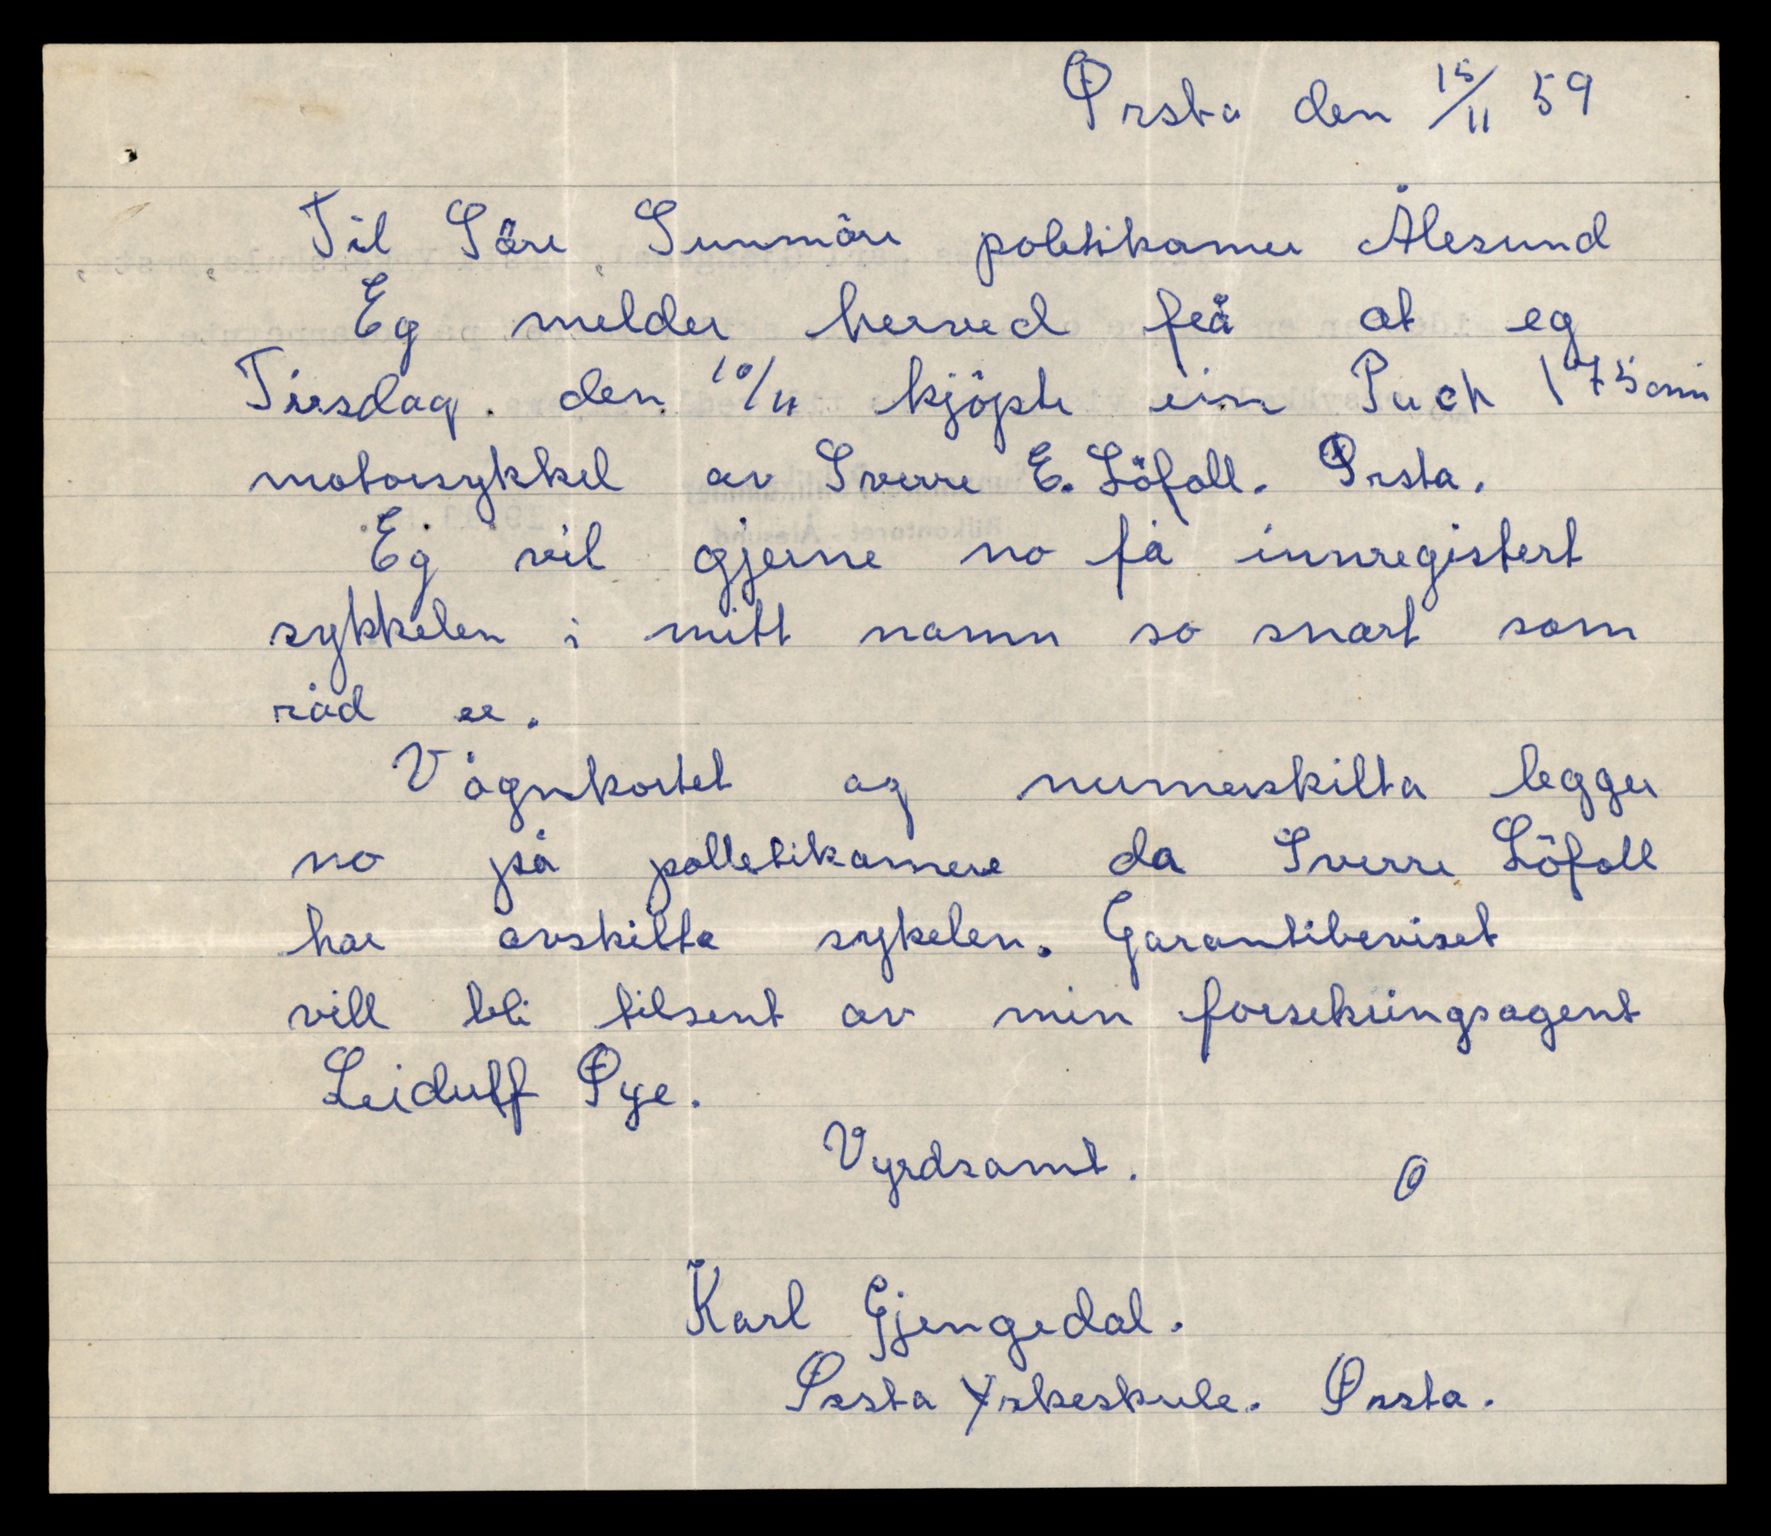 Ørsta den 15/11 59
Til Söre Sunmöre politikamer Ålesund
Eg melder herved frå at eg
Tirsdag. den 10/11 kjöpte ein Puch 175cm
motorsykkel av Sverre E. Löfoll. Ørsta.
Eg vil gjerne no få innregistert
sykkelen i mitt namn so snart som
råd er.
Vognkortet og numerskilta legger
no på polletikamere da Sverre Löfoll
har avskilta sykelen. Garantibeviset
vill bli tilsent av min forsekringsagent
Leidulf Øye.
Vyrdsamt.
Karl Gjengedal.
Ørsta Yrkeskule. Ørsta.